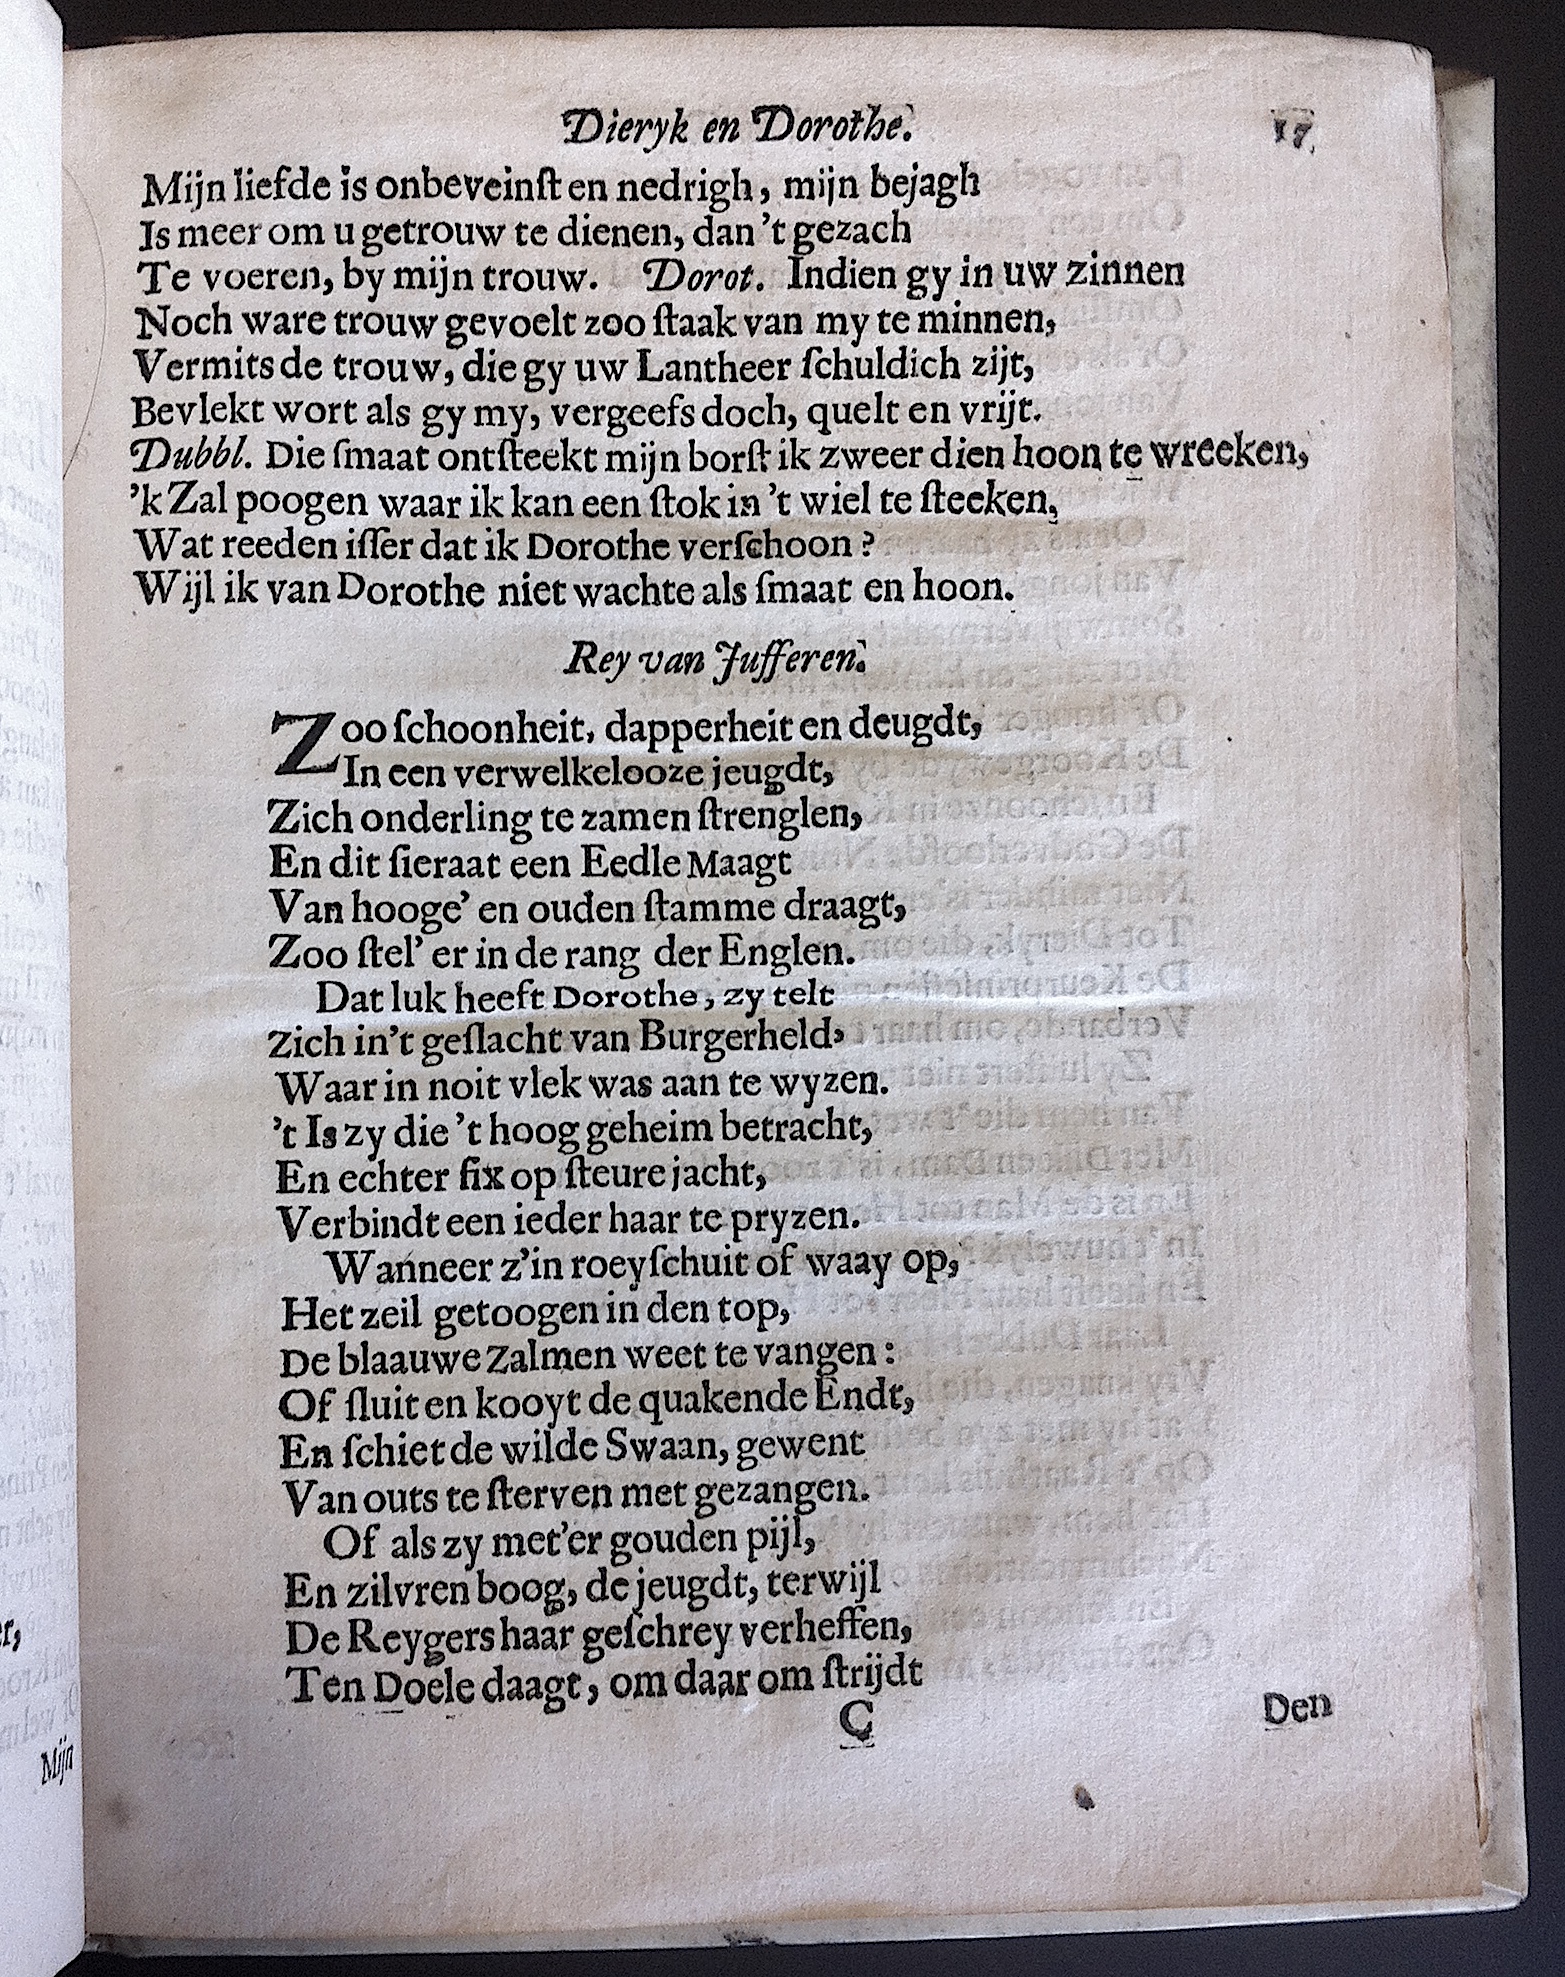 Dieryk en Dorothe. 17.
Mijn liefde is onbeveinſt en nedrigh, mijn bejagh
Is meer om u getrouw te dienen, dan 't gezach
Te voeren, by mijn trouw. Dorot. Indien gy in uw zinnen
Noch ware trouw gevoelt zoo ſtaak van my te minnen,
Vermits de trouw, die gy uw Lantheer ſchuldich zijt,
Bevlekt wort als gy my, vergeefs doch, quelt en vrijt.
Dubbl. Die ſmaat ontſteekt mijn borſt ik zweer dien hoon te wreeken,
'k Zal poogen waar ik kan een ſtok in 't wiel te ſteeken,
Wat reeden iſſer dat ik Dorothe verſchoon?
Wijl ik van Dorothe niet wachte als ſmaat en hoon.
Rey van Jufferen.
Zoo ſchoonheit, dapperheit en deugdt,
In een verwelkelooze jeugdt,
Zich onderling te zamen ſtrenglen,
En dit ſieraat een Eedle Maagt
Van hooge' en ouden ſtamme draagt,
Zoo ſtel' er in de rang der Englen.
Dat luk heeft Dorothe, zy telt
Zich in't geſlacht van Burgerheld,
Waar in noit vlek was aan te wyzen.
't Is zy die 't hoog geheim betracht,
En echter fix op ſteure jacht,
Verbindt een ieder haar te pryzen.
Wanneer z'in roeyſchuit of waay op,
Het zeil getoogen in den top,
De blaauwe Zalmen weet te vangen:
Of ſluit en kooyt de quakende Endt,
En ſchiet de wilde Swaan, gewent
Van outs te ſterven met gezangen.
Of als zy met'er gouden pijl,
En zilvren boog, de jeugdt, terwijl
De Reygers haar geſchrey verheffen,
Ten Doele daagt, om daar om ſtrijdt
C Den
r,
Mijn